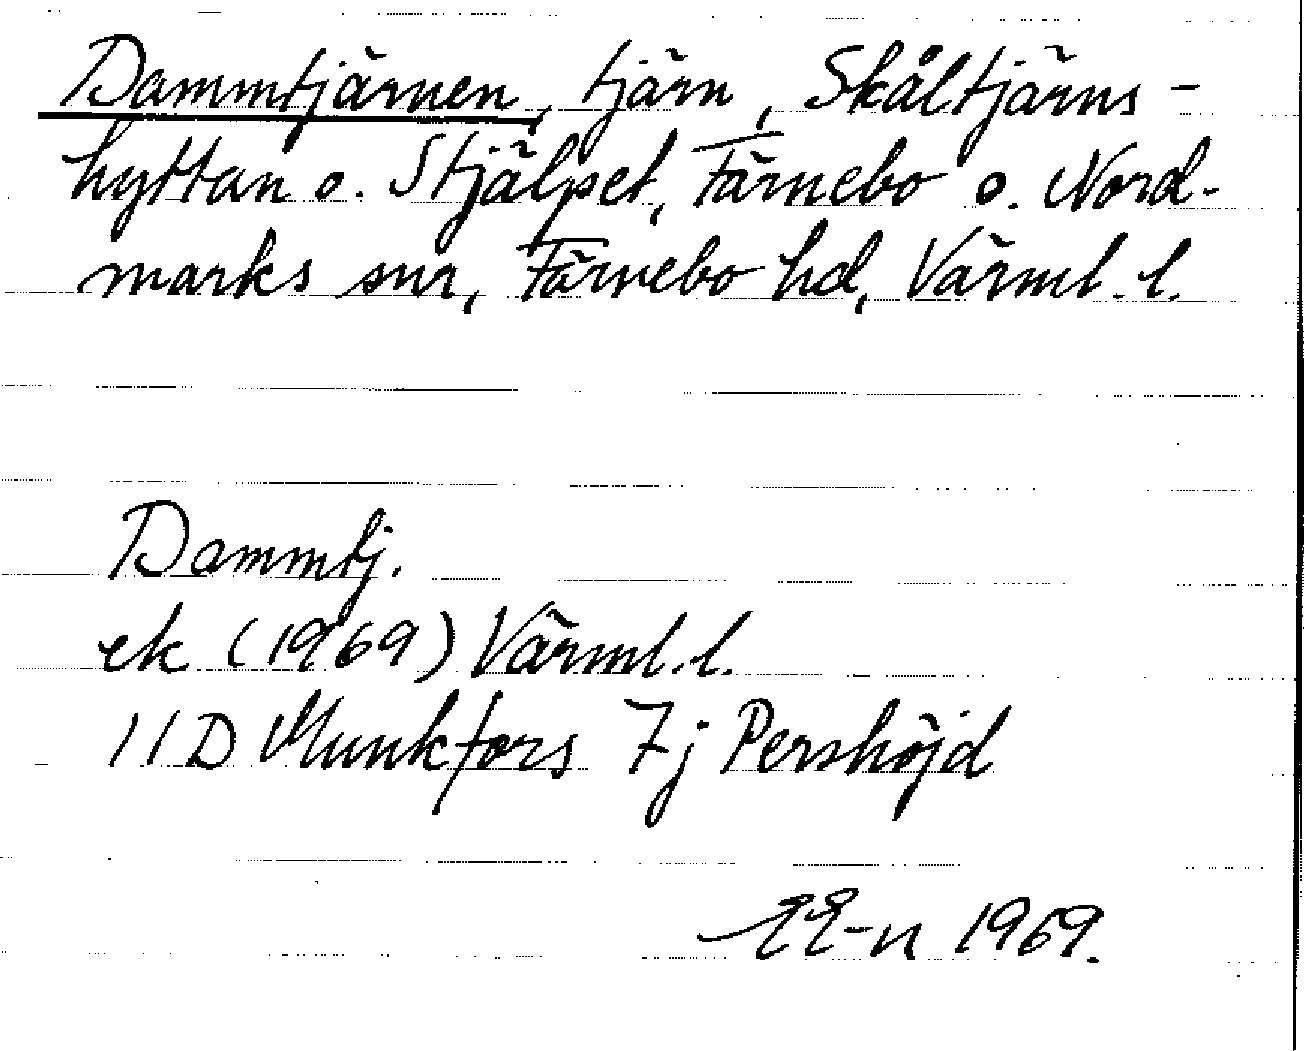 Dammtjärnen, tjärn, Skåltjärns-
hyttan o. Stjälpet, Färnebo o. Nord-
marks snr, Färnebo hd, Värml. l.
Dammtj.
ek (1969) Värml. l.
11D Munkfors 7j Pershöjd
EE-n 1969.